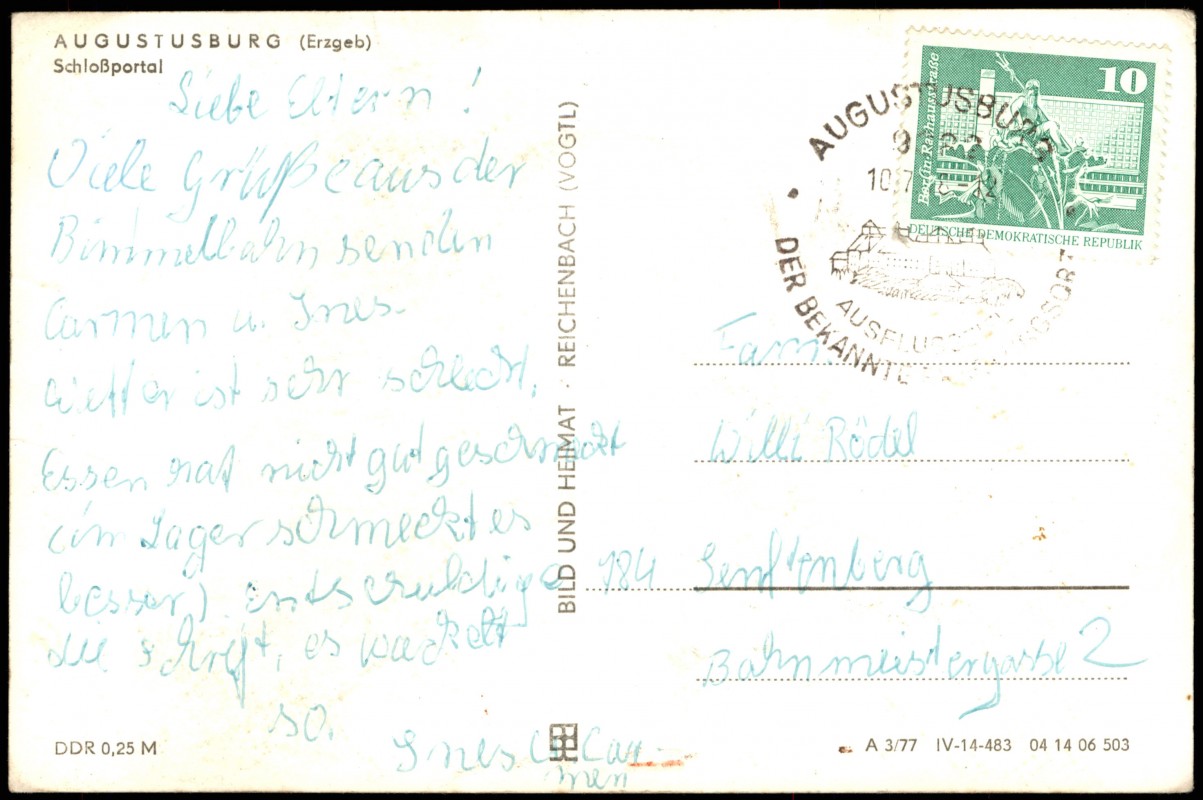 AUGUSTUSBURG (Erzgeb)
Schloßportal
Liebe Eltern!
Viele Grüße aus der
Bimmelbahn senden
Carmen u. Ines.
Wetter ist sehr schlecht,
Essen hat nicht gut geschmeckt
(im Lager schmeckt es
besser) entschuldige
die Schrift, es wackelt
so.
Ines u. Car-
men
DDR 0,25 M
BILD UND HEIMAT · REICHENBACH (VOGTL)
10
Berlin-Rathausstraße
DEUTSCHE DEMOKRATISCHE REPUBLIK
AUGUSTUSBURG
10.7.
DER BEKANNTE
Fam
Willi Rödel
784 Senftenberg
Bahnmeistergasse 2
A 3/77 IV-14-483 04 14 06 503